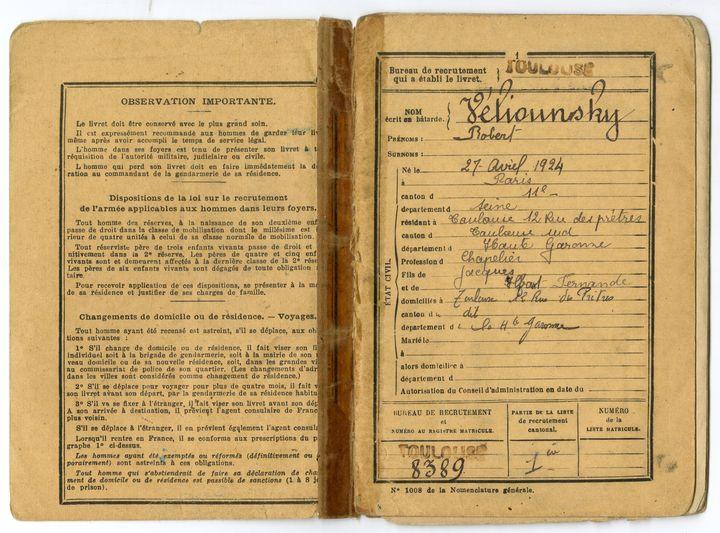 OBSERVATION IMPORTANTE.
Le livret doit être conservé avec le plus grand soin.
Il est expressément recommandé aux hommes de garder leur liv
même après avoir accompli le temps de service légal.
L'homme dans ses foyers est tenu de présenter son livret à t
réquisition de l'autorité militaire, judiciaire ou civile.
L'homme qui perd son livret doit en faire immédiatement la dé
ration au commandant de la gendarmerie de sa résidence.
Dispositions de la loi sur le recrutement
de l'armée applicables aux hommes dans leurs foyers.
Tout homme des réserves, à la naissance de son deuxième enf
passe de droit dans la classe de mobilisation dont le millésime est
rieur de quatre unités à celui de sa classe normale de mobilisation.
Tout réserviste père de trois enfants vivants passe de droit et
nitivement dans la 2e réserve. Les pères de quatre et cinq enf
vivants sont et demeurent affectés à la dernière classe de la 2e rése
Les pères de six enfants vivants sont dégagés de toute obligation
taire.
Pour recevoir application de ces dispositions, se présenter à la m
de sa résidence et justifier de ses charges de famille.
Changements de domicile ou de résidence. — Voyages.
Tout homme ayant été recensé est astreint, s'il se déplace, aux ob
tions suivantes :
1° S'il change de domicile ou de résidence, il fait viser son
individuel soit à la brigade de gendarmerie, soit à la mairie de son
veau domicile ou de sa nouvelle résidence, soit, dans les grandes vi
au commissariat de police de son quartier. (Les changements d'adr
dans les villes sont considérés comme changements de domicile.)
2° S'il se déplace pour voyager pour plus de quatre mois, il fait v
son livret avant son départ, par la gendarmerie de sa résidence habitu
3° S'il va se fixer à l'étranger, il fait viser son livret avant son dép
A son arrivée à destination, il prévient l'agent consulaire de Franc
plus voisin.
S'il se déplace à l'étranger, il en prévient également l'agent consul
Lorsqu'il rentre en France, il se conforme aux prescriptions du p
graphe 1° ci-dessus.
Les hommes ayant été exemptés ou réformés (définitivement ou
porairement) sont astreints à ces obligations.
Tout homme qui s'abstiendrait de faire sa déclaration de cha
ment de domicile ou de résidence est passible de sanctions (1 à 8 j
de prison).
1
Bureau de recrutement
qui a établi le livret.
TOULOUSE
NOM
écrit en bâtarde.
Véliounsky
PRÉNOMS : Robert
SURNOMS :
ÉTAT CIVIL.
Né le 27 Avril 1924
à Paris
canton d 11e
département d Seine
résidant à Toulouse 12 Rue des prêtres
canton d Toulouse sud
département d Haute Garonne
Profession d Chapelier
Fils de Jacques
et de Fernande
domiciliés à Toulouse 12 Rue des Prêtres
canton du dit
département d e la Hte Garonne
Marié le
à
alors domiciliée à
département d
Autorisation du Conseil d'administration en date du
BUREAU DE RECRUTEMENT
et
NUMÉRO AU REGISTRE MATRICULE.
PARTIE DE LA LISTE
de recrutement
cantonal.
NUMÉRO
de la
LISTE MATRICULE.
TOULOUSE
8389
1re
N° 1008 de la Nomenclature générale.